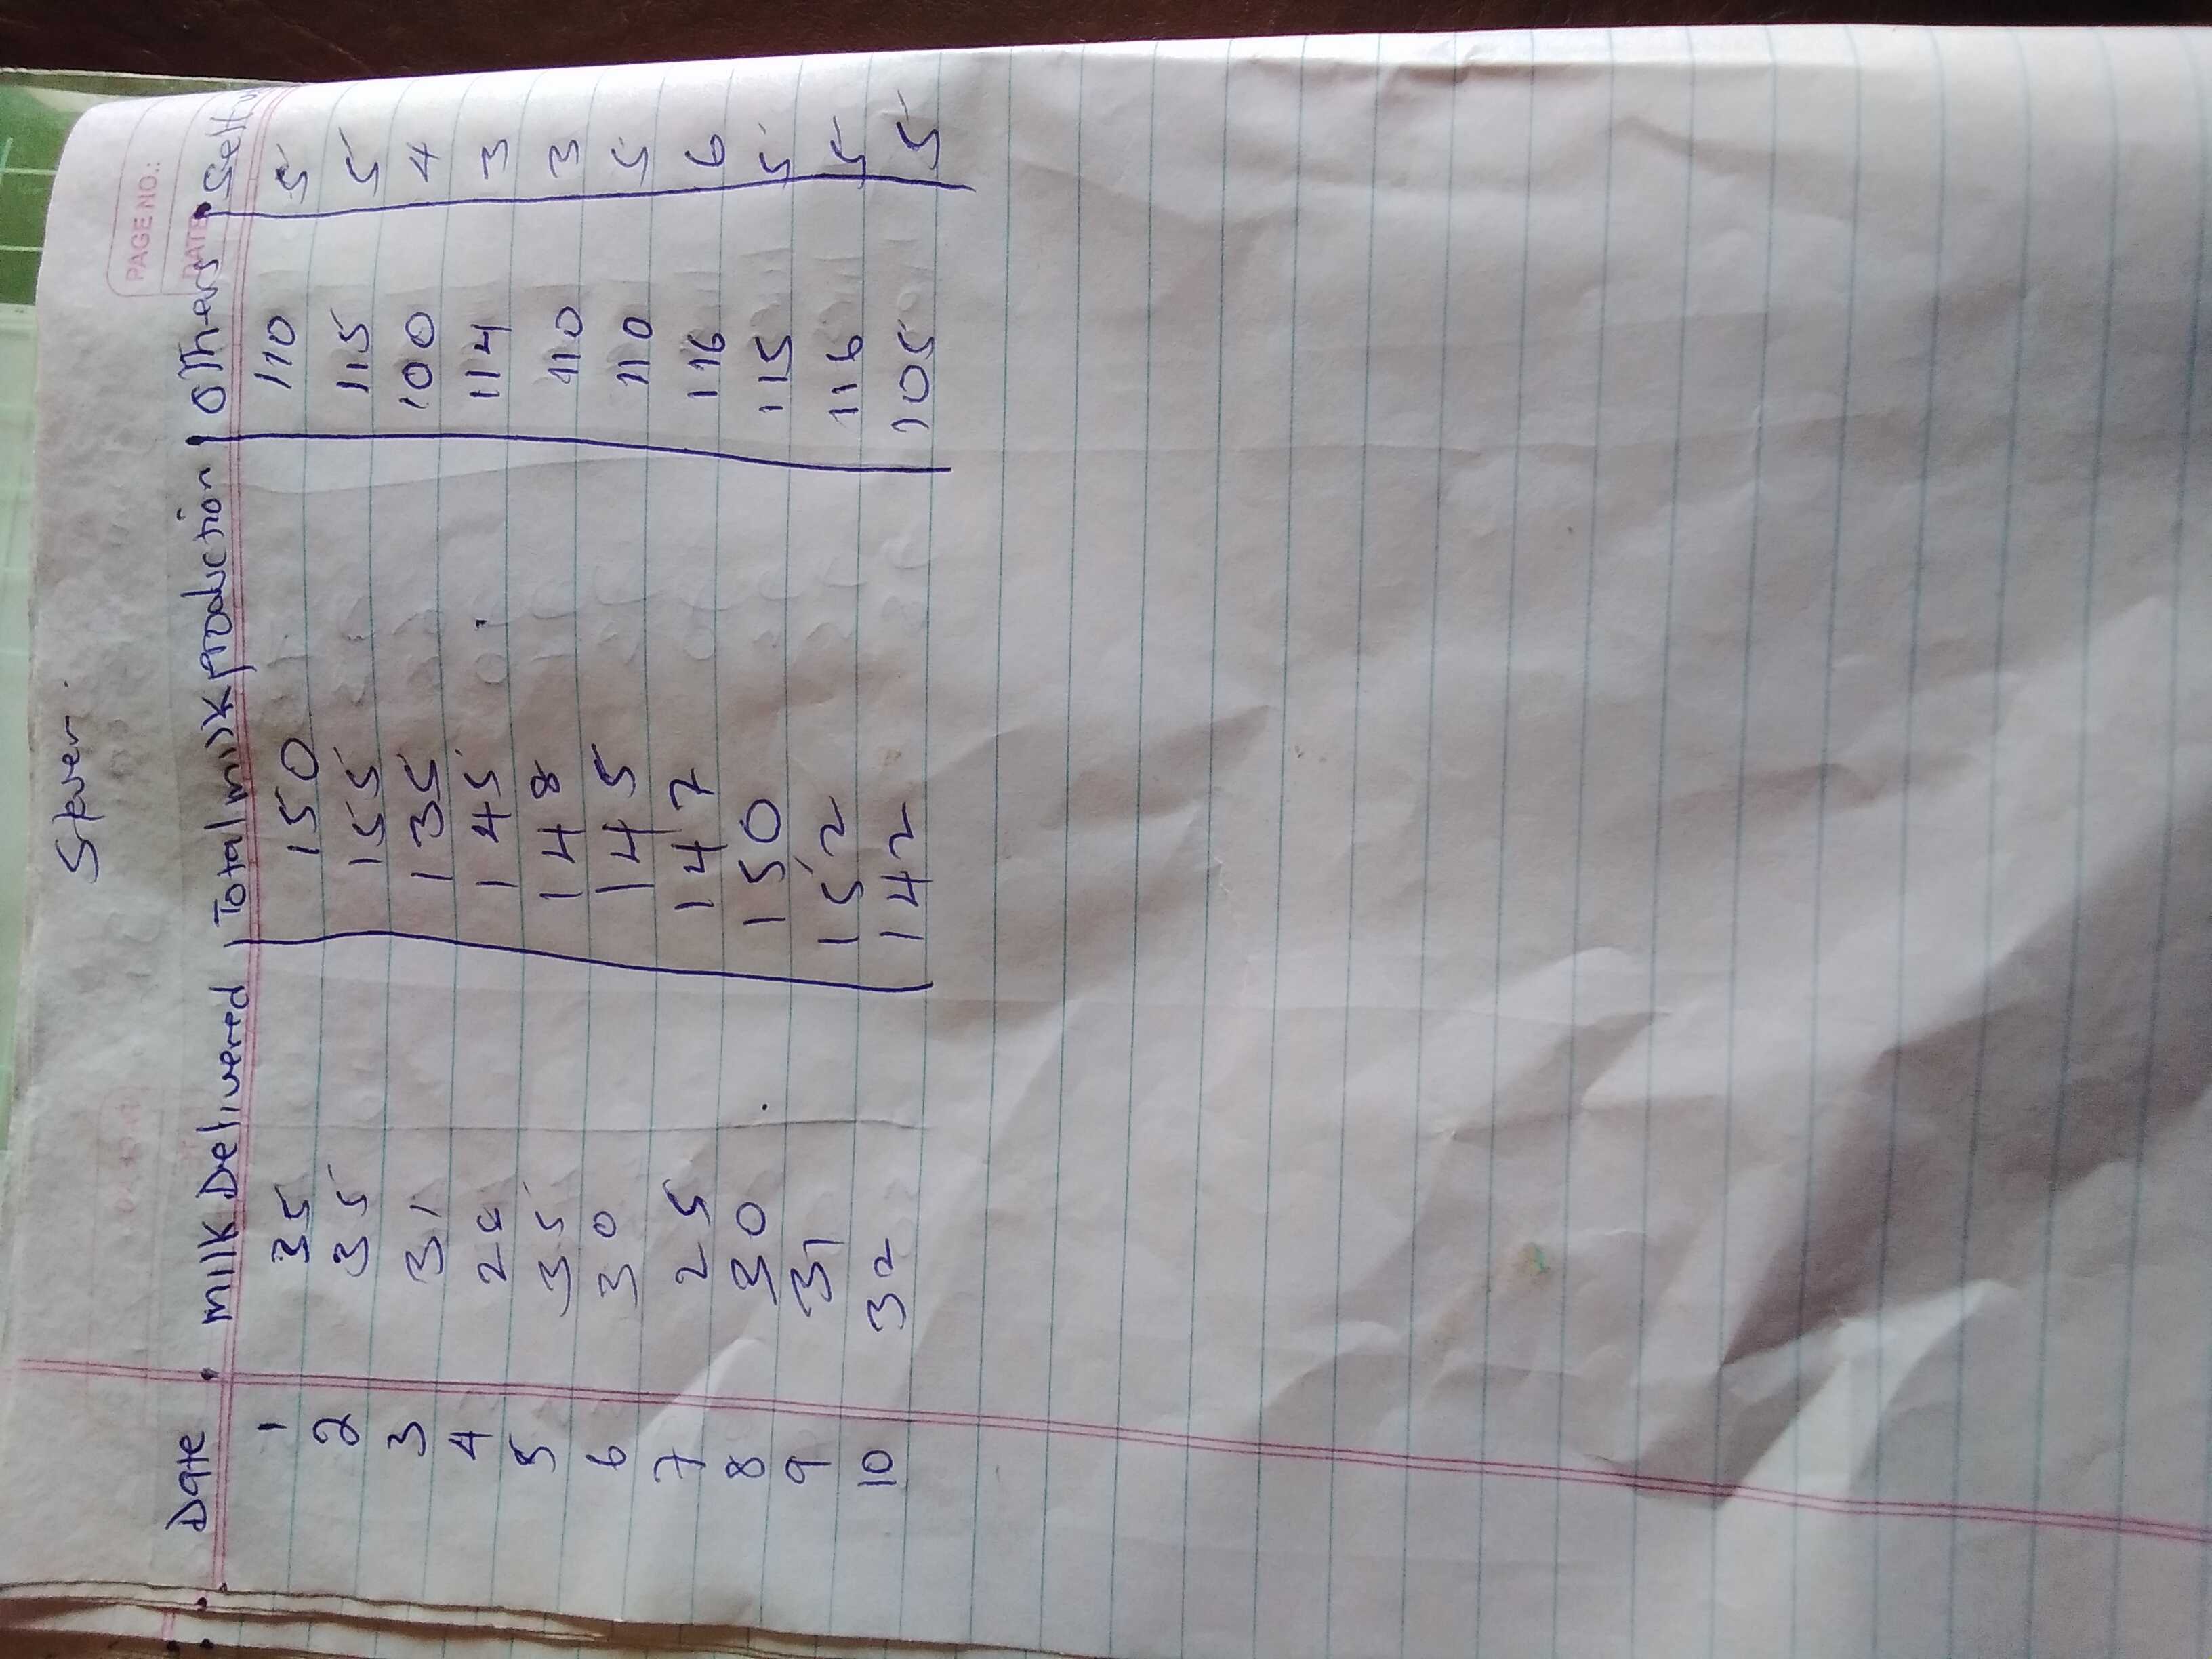 Steven.
PAGE NO.:
DATE
Date milk Delivered Total milk production Others Self
1 35 150 110 5
2 35 155 115 5
3 31 135 100 4
4 28 145 114 3
5 35 148 110 3
6 30 145 110 5
7 25 147 116 6
8 30 150 115 5
9 31 152 116 5
10 32 142 105 5